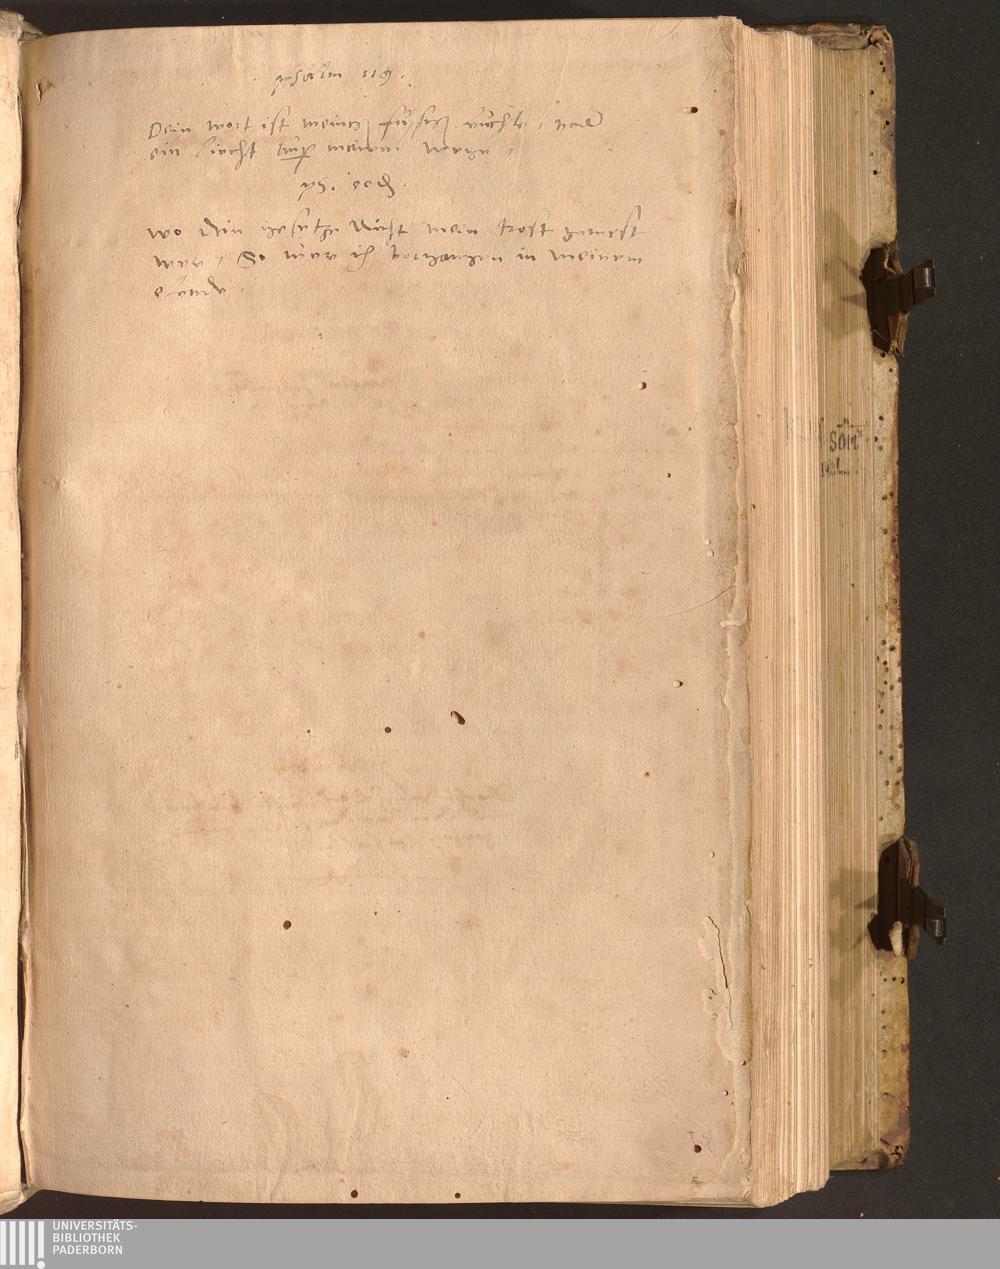 psalm 119.
Dein wort ist meiner fusse leuchte, vnd
ein liecht auff meinem wege,
ps.
wo dein gesetze nicht mein trost gewest
wer, So wer ich vorgangen in meinem
elende.
UNIVERSITÄTS-
BIBLIOTHEK
PADERBORN